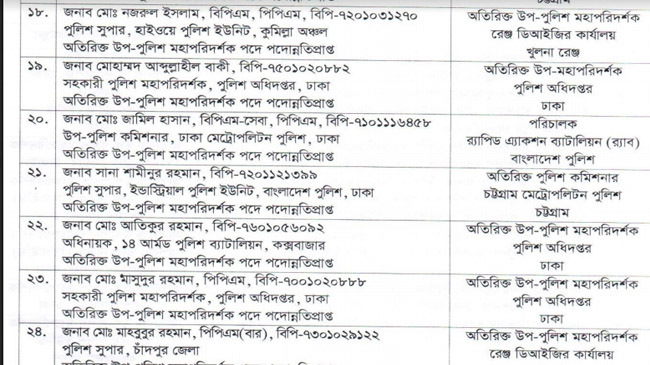 চট্টগ্রাম
১৮. জনাব মোঃ নজরুল ইসলাম, বিপিএম, পিপিএম, বিপি-৭২০১০৩১২৭০ অতিরিক্ত উপ-পুলিশ মহাপরিদর্শক
পুলিশ সুপার, হাইওয়ে পুলিশ ইউনিট, কুমিল্লা অঞ্চল রেঞ্জ ডিআইজির কার্যালয়
অতিরিক্ত উপ-পুলিশ মহাপরিদর্শক পদে পদোন্নতিপ্রাপ্ত খুলনা রেঞ্জ
১৯. জনাব মোহাম্মদ আব্দুল্লাহীল বাকী, বিপি-৭৫০১০২০৮৮২ অতিরিক্ত উপ-মহাপরিদর্শক
সহকারী পুলিশ মহাপরিদর্শক, পুলিশ অধিদপ্তর, ঢাকা পুলিশ অধিদপ্তর
অতিরিক্ত উপ-পুলিশ মহাপরিদর্শক পদে পদোন্নতিপ্রাপ্ত ঢাকা
২০. জনাব মোঃ জামিল হাসান, বিপিএম-সেবা, পিপিএম, বিপি-৭১০১১১৬৪৫৮ পরিচালক
উপ-পুলিশ কমিশনার, ঢাকা মেট্রোপলিটন পুলিশ, ঢাকা র‍্যাপিড এ্যাকশন ব্যাটালিয়ন (র‍্যাব)
অতিরিক্ত উপ-পুলিশ মহাপরিদর্শক পদে পদোন্নতিপ্রাপ্ত বাংলাদেশ পুলিশ
২১. জনাব সানা শামীনুর রহমান, বিপি-৭২০১১২১৩৯৯ অতিরিক্ত পুলিশ কমিশনার
পুলিশ সুপার, ইন্ডাস্ট্রিয়াল পুলিশ ইউনিট, বাংলাদেশ পুলিশ, ঢাকা চট্টগ্রাম মেট্রোপলিটন পুলিশ
অতিরিক্ত উপ-পুলিশ মহাপরিদর্শক পদে পদোন্নতিপ্রাপ্ত চট্টগ্রাম
২২. জনাব মোঃ আতিকুর রহমান, বিপি-৭৬০১০৫৬০৯২ অতিরিক্ত উপ-পুলিশ মহাপরিদর্শক
অধিনায়ক, ১৪ আর্মড পুলিশ ব্যাটালিয়ন, কক্সবাজার পুলিশ অধিদপ্তর
অতিরিক্ত উপ-পুলিশ মহাপরিদর্শক পদে পদোন্নতিপ্রাপ্ত ঢাকা
২৩. জনাব মোঃ মাসুদুর রহমান, পিপিএম, বিপি-৭০০১০২০৮৮৮ অতিরিক্ত উপ-পুলিশ মহাপরিদর্শক
সহকারী পুলিশ মহাপরিদর্শক, পুলিশ অধিদপ্তর, ঢাকা পুলিশ অধিদপ্তর
অতিরিক্ত উপ-পুলিশ মহাপরিদর্শক পদে পদোন্নতিপ্রাপ্ত ঢাকা
২৪. জনাব মোঃ মাহবুবুর রহমান, পিপিএম(বার), বিপি-৭৩০১০২৯১২২ অতিরিক্ত উপ-পুলিশ মহাপরিদর্শক
পুলিশ সুপার, চাঁদপুর জেলা রেঞ্জ ডিআইজির কার্যালয়